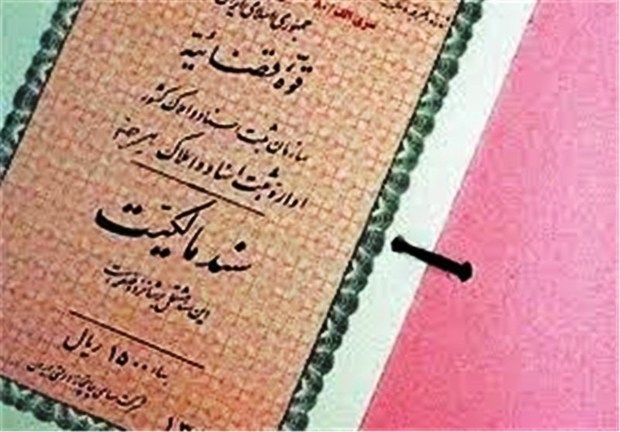 جمهوری اسلامی ایران
قوه قضائیه
سازمان ثبت اسناد و املاک کشور
اداره ثبت اسناد و املاک
سند مالکیت
این سند مشتمل بر شانزده صفحه است
بها ۱۵۰۰ ریال